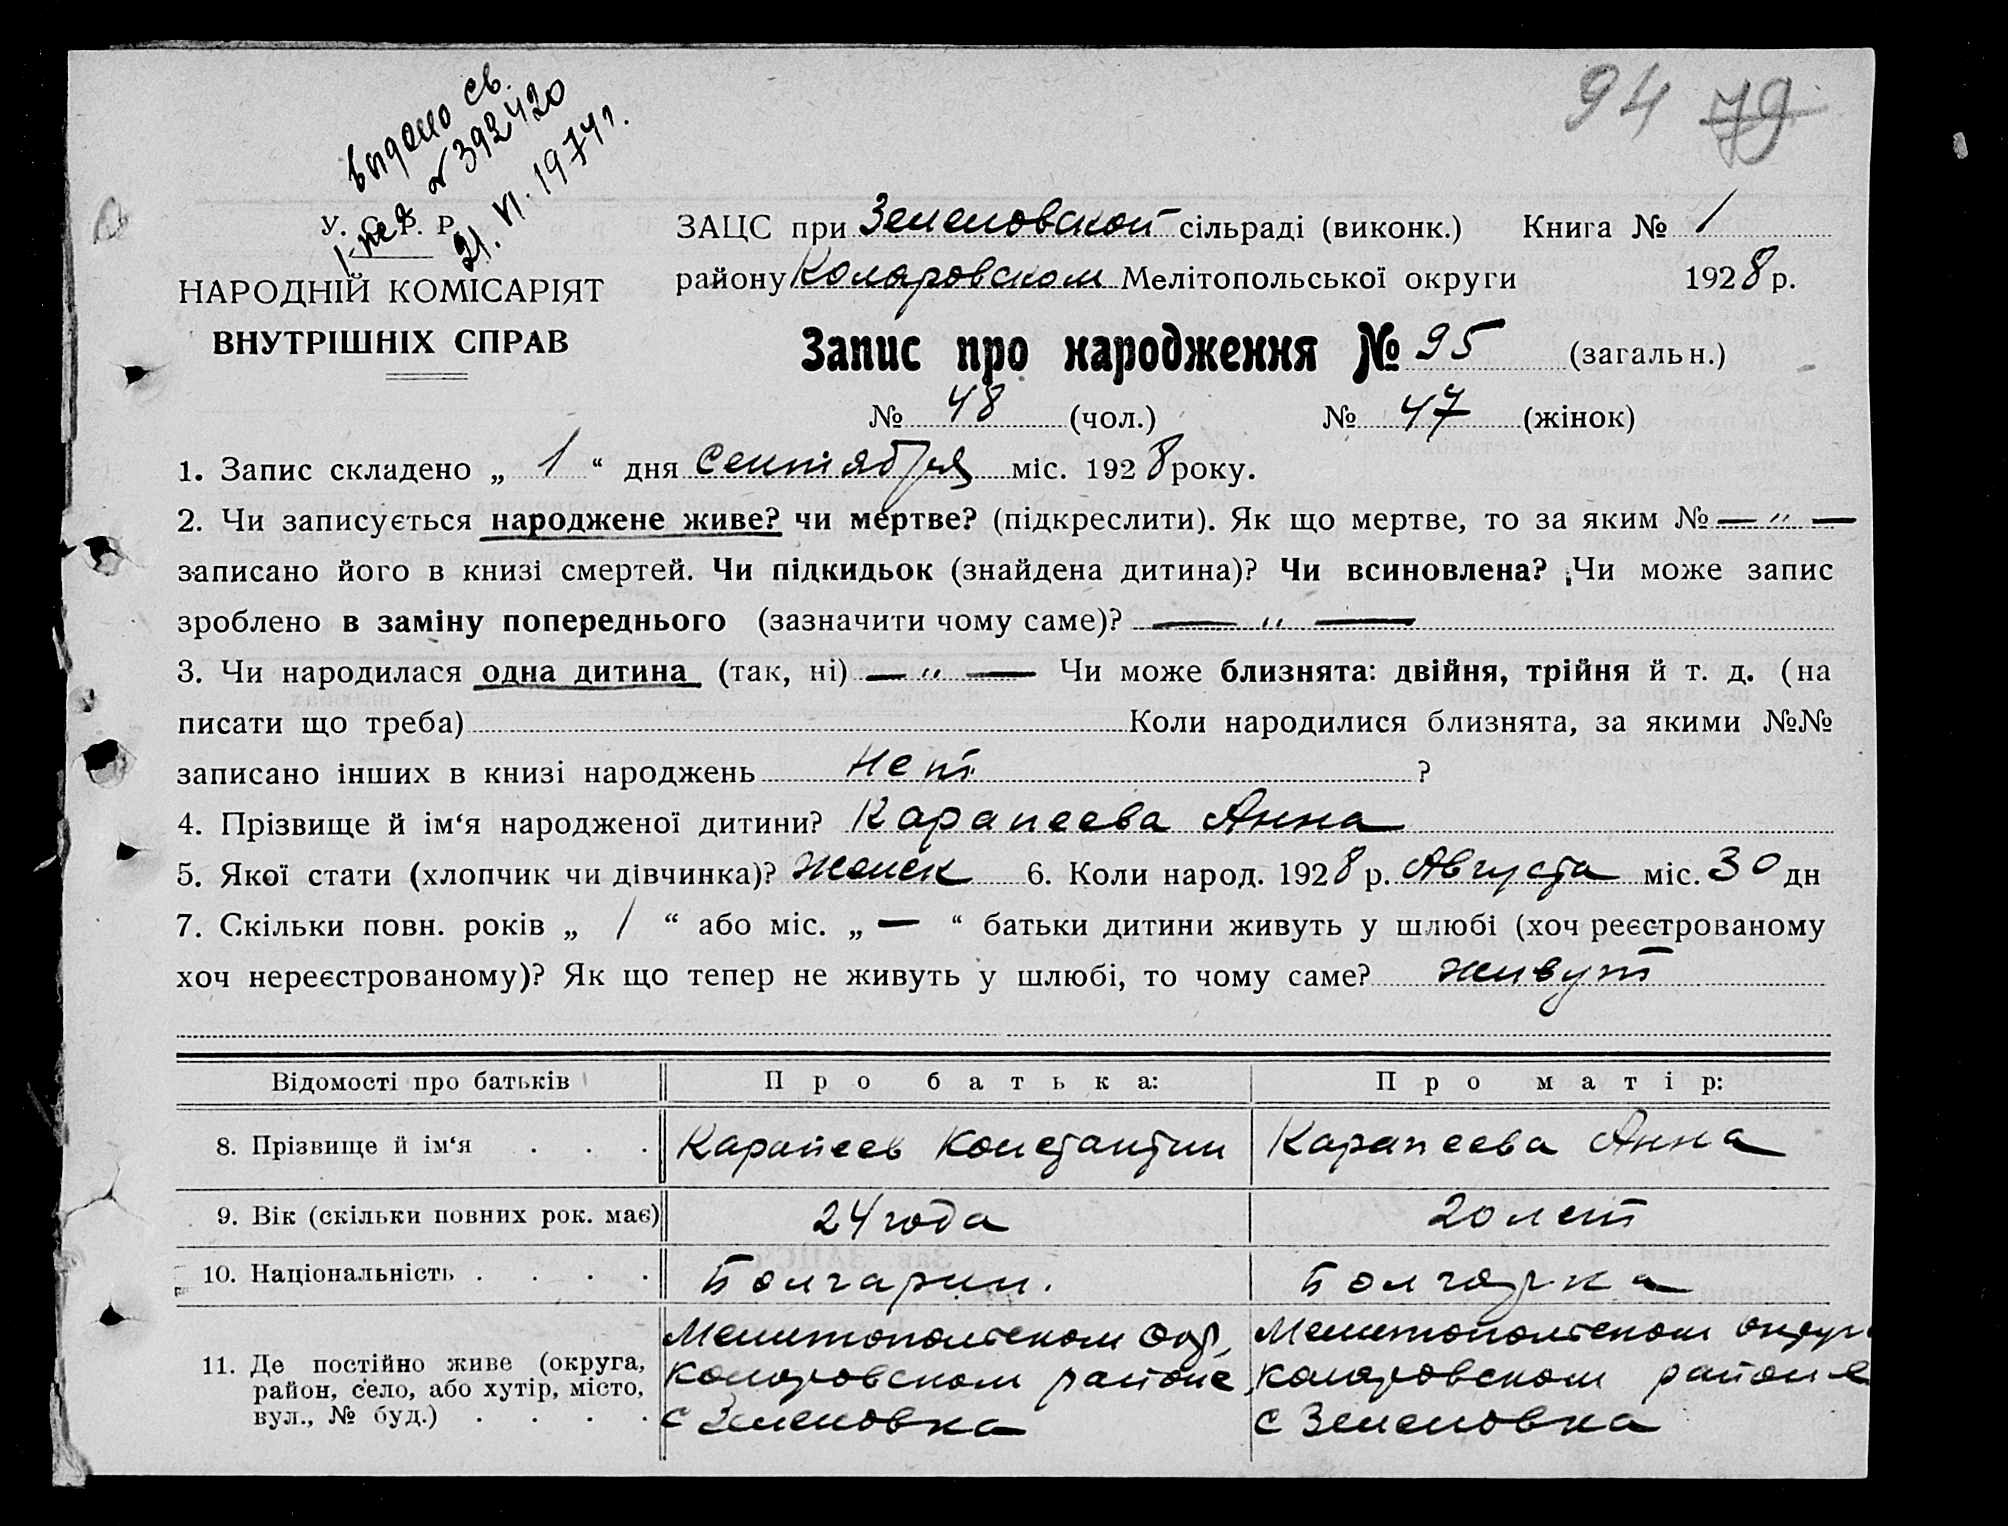 94 79
выдано св.
I пег № 392420
21.VI.1974г.
У. С. Р. Р.
НАРОДНІЙ КОМІСАРІЯТ
ВНУТРІШНІХ СПРАВ
ЗАЦС при Зеленовской сільраді (виконк.) Книга № 1
району Коларовском Мелітопольської округи 1928 р.
Запис про народження № 95 (загальн.)
№ 48 (чол.) № 47 (жінок)
1. Запис складено „ 1 “ дня сентября міс. 1928 року.
2. Чи записується народжене живе? чи мертве? (підкреслити). Як що мертве, то за яким № — „ —
записано його в книзі смертей. Чи підкидьок (знайдена дитина)? Чи всиновлена? Чи може запис
зроблено в заміну попереднього (зазначити чому саме)? — „ —
3. Чи народилася одна дитина (так, ні) — „ — Чи може близнята: двійня, трійня й т. д. (на
писати що треба) Коли народилися близнята, за якими №№
записано інших в книзі народжень нет ?
4. Прізвище й ім‘я народженої дитини? Карапеева Анна
5. Якої стати (хлопчик чи дівчинка)? женск 6. Коли народ. 1928 р. Августа міс. 30 дн
7. Скільки повн. років „ 1 “ або міс. „ — “ батьки дитини живуть у шлюбі (хоч реєстрованому
хоч нереєстрованому)? Як що тепер не живуть у шлюбі, то чому саме? живут
Відомості про батьків Про батька: Про матір:
8. Прізвище й ім‘я . . . Карапеев Константин Карапеева Анна
9. Вік (скільки повних рок. має) 24 года 20 лет
10. Національність . . . . Болгарин. Болгарка
11. Де постійно живе (округа, район, село, або хутір, місто, вул., № буд.) . . . .
Мелитопольском окр,
Коларовском районе
с Зеленовка
Мелитопольском округе
Коларовском районе
с Зеленовка